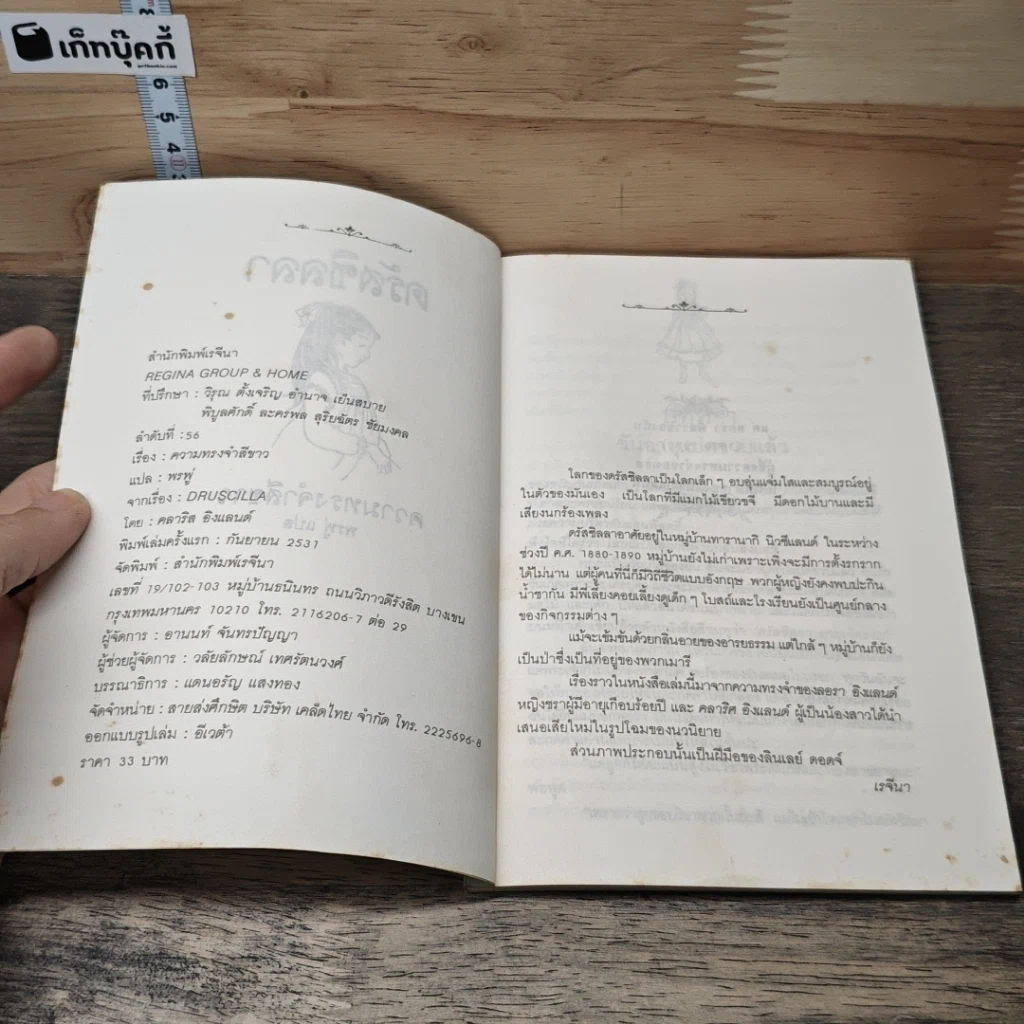 เก็ทบุ๊คกี้
6
5
4
สำนักพิมพ์เรจีนา
REGINA GROUP & HOME
ที่ปรึกษา : วิรุณ ตั้งเจริญ อำนาจ เย็นสบาย
พิบูลศักดิ์ ละครพล สุริยฉัตร ชัยมงคล
ลำดับที่ :56
เรื่อง : ความทรงจำสีขาว
แปล : พรพู่
จากเรื่อง : DRUSCILLA
โดย : คลาริส อิงแลนด์
พิมพ์เล่มครั้งแรก : กันยายน 2531
จัดพิมพ์ : สำนักพิมพ์เรจีนา
เลขที่ 19/102-103 หมู่บ้านธนินทร ถนนวิภาวดีรังสิต บางเขน
กรุงเทพมหานคร 10210 โทร. 2116206-7 ต่อ 29
ผู้จัดการ : อานนท์ จันทรปัญญา
ผู้ช่วยผู้จัดการ : วลัยลักษณ์ เทศรัตนวงศ์
บรรณาธิการ : แดนอรัญ แสงทอง
จัดจำหน่าย : สายส่งศึกษิต บริษัท เคล็ดไทย จำกัด โทร. 2225696-8
ออกแบบรูปเล่ม : อีเวต้า
ราคา 33 บาท
โลกของดรัสซิลลาเป็นโลกเล็ก ๆ อบอุ่นแจ่มใสและสมบูรณ์อยู่
ในตัวของมันเอง เป็นโลกที่มีแมกไม้เขียวขจี มีดอกไม้บานและมี
เสียงนกร้องเพลง
ดรัสซิลลาอาศัยอยู่ในหมู่บ้านทารานากิ นิวซีแลนด์ ในระหว่าง
ช่วงปี ค.ศ. 1880-1890 หมู่บ้านยังไม่เก่าเพราะเพิ่งจะมีการตั้งรกราก
ได้ไม่นาน แต่ผู้คนที่นี่ก็มีวิถีชีวิตแบบอังกฤษ พวกผู้หญิงยังคงพบปะกิน
น้ำชากัน มีพี่เลี้ยงคอยเลี้ยงดูเด็ก ๆ โบสถ์และโรงเรียนยังเป็นศูนย์กลาง
ของกิจกรรมต่าง ๆ
แม้จะเข้มข้นด้วยกลิ่นอายของอารยธรรม แต่ใกล้ ๆ หมู่บ้านก็ยัง
เป็นป่าซึ่งเป็นที่อยู่ของพวกเมารี
เรื่องราวในหนังสือเล่มนี้มาจากความทรงจำของลอรา อิงแลนด์
หญิงชราผู้มีอายุเกือบร้อยปี และ คลาริศ อิงแลนด์ ผู้เป็นน้องสาวได้นำ
เสนอเสียใหม่ในรูปโฉมของนวนิยาย
ส่วนภาพประกอบนั้นเป็นฝีมือของลินเลย์ ดอดจ์
เรจีนา